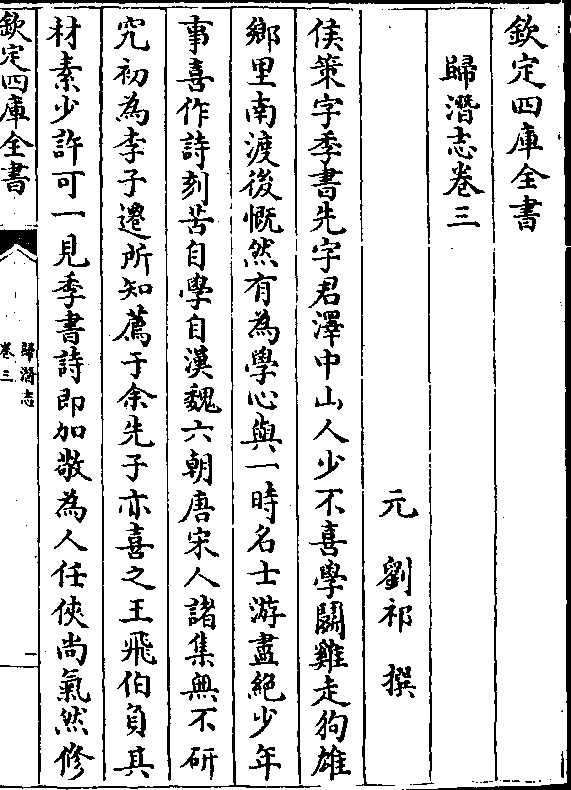 欽定四庫全書
歸潛志卷三
元 劉祁 撰
侯策字季書先字君澤中山人少不喜學鬭雞走狗雄
鄉里南渡後慨然有為學心與一時名士游盡絕少年
事喜作詩刻苦自學自漢魏六朝唐宋人諸集無不研
究初為李子遷所知薦于余先子亦喜之王飛伯負其
材素少許可一見季書詩即加敬為人任俠尚氣然修
欽定四庫全書
歸潛志
卷三
一